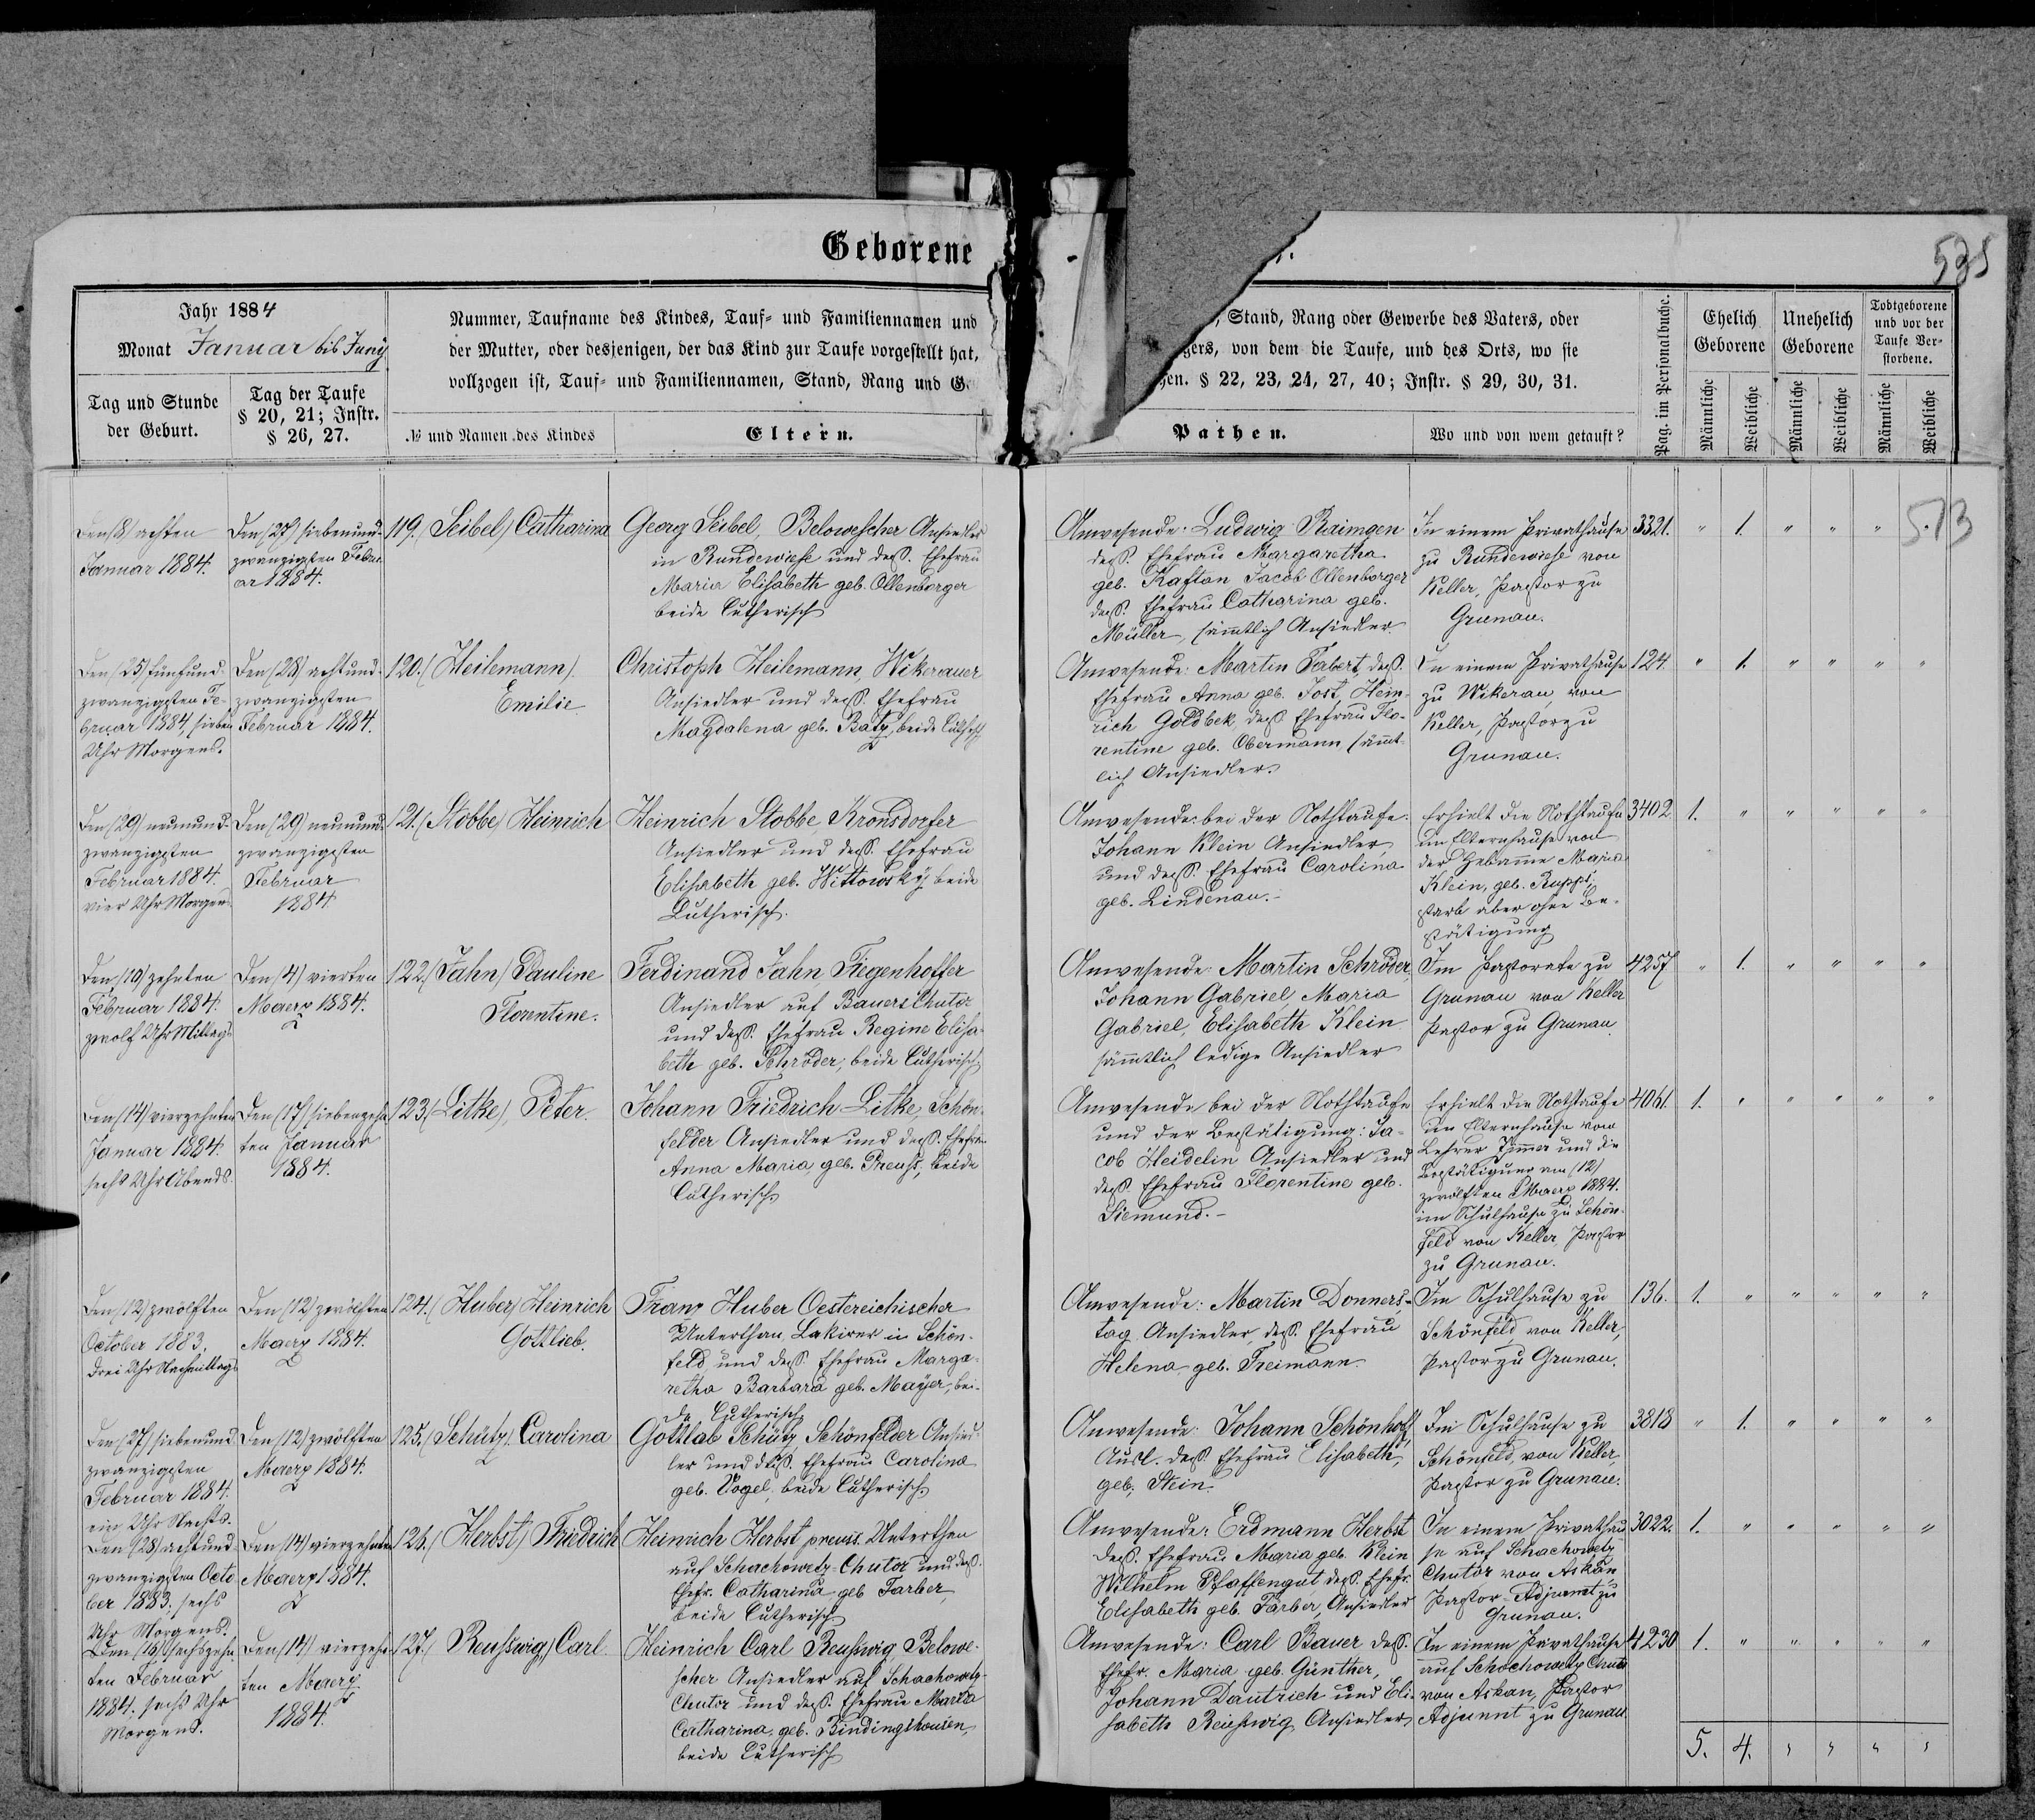 Geborene
535
Jahr 1884
Monat Januar bis Juny
Tag und Stunde
der Geburt.
Tag der Taufe
§ 20, 21; Instr.
§ 26, 27.
Nummer, Taufname des Kindes, Tauf- und Familiennamen und
der Mutter, oder desjenigen, der das Kind zur Taufe vorgestellt hat,
vollzogen ist, Tauf- und Familiennamen, Stand, Rang und G
№ und Namen des Kindes
Eltern.
Stand, Rang oder Gewerbe des Vaters, oder
gers, von dem die Taufe, und des Orts, wo sie
hen. § 22, 23, 24, 27, 40; Instr. § 29, 30, 31.
Pathen.
Wo und von wem getauft?
Pag. im Personalbuche.
Ehelich
Geborene
Unehelich
Geborene
Todtgeborene
und vor der
Taufe Ver-
storbene.
Männliche
Weibliche
Männliche
Weibliche
Männliche
Weibliche
Den (8) achten
Januar 1884.
Den (27) siebenund-
zwanzigsten Febru-
ar 1884.
119. (Seibel) Catharina
Georg Seibel, Belowescher Ansiedler
in Rundewiese und dess. Ehefrau
Maria Elisabeth geb. Ollenborger
beide Lutherisch
Anwesende: Ludwig Raimgen
dess. Ehefrau Margaretha
geb. Kaftan Jacob Ollenborger
dess. Ehefrau Catharina geb.
Müller, sämmtlich Ansiedler.
In einem Privathause
zu Rundewiese von
Keller, Pastor zu
Grunau.
3321. " 1. " " "
513
Den (25) fünfund-
zwanzigsten Fe-
bruar 1884, sieben
Uhr Morgens.
Den (28) achtund-
zwanzigsten
Februar 1884.
120. (Heilemann)
Emilie
Christoph Heilemann, Wikerauer
Ansiedler und dess. Ehefrau
Magdalena geb. Batz, beide Luthsch
Anwesende: Martin Fabert, dess.
Ehefrau Anna geb. Jost, Hein-
rich Goldbek, dess. Ehefrau Flo-
rentine geb. Obermann sämmt-
lich Ansiedler.
In einem Privathause
zu Wikerau, von
Keller, Pastor zu
Grunau.
124. " 1. " " " "
Den (29) neunund-
zwanzigsten
Februar 1884.
vier Uhr Morgens
Den (29) neunund-
zwanzigsten
Februar
1884
121. (Stobbe) Heinrich
Heinrich Stobbe, Kronsdorfer
Ansiedler und dess. Ehefrau
Elisabeth geb. Wittowsky, beide
Lutherisch.
Anwesende bei der Nothtaufe:
Johann Klein Ansiedler,
und dess. Ehefrau Carolina
geb. Lindenau.-
Erhielt die Nothtaufe
im Elternhause von
der Hebamme Maria
Klein, geb. Rupps,
starb aber ohne Be-
stätigung
3402 1. " " " " "
Den (10) zehnten
Februar 1884.
zwölf Uhr Mittags
Den (4) vierten
Maerz 1884.
122. (Jahn) Pauline
Florentine.
Ferdinand Jahn, Tiegenhoffer
Ansiedler auf Bauers Chutor
und dess. Ehefrau Regine Elisa-
beth geb. Schröder, beide Lutherisch
Anwesende: Martin Schröder,
Johann Gabriel, Maria
Gabriel, Elisabeth Klein
sämmtlich ledige Ansiedler
Im Pastorate zu
Grunau von Keller
Pastor zu Grunau
4257 " 1. " " " "
Den (14) vierzehnten
Januar 1884.
sechs Uhr Abends.
Den (17) siebenzehn-
ten Januar
1884.
123. (Litke), Peter.
Johann Friedrich Litke, Schön-
felder Ansiedler und dess. Ehefrau
Anna Maria, geb. Preuss, beide
Lutherisch.
Anwesende bei der Nothtaufe
und der Bestätigung: Ja-
cob Heidelin Ansiedler und
dess. Ehefrau Florentine geb.
Siemund.-
Erhielt die Nothtaufe
im Elternhause vom
Lehrer Immer und die
Bestätigung am (12)
zwölften Maerz 1884.
im Schulhause zu Schön-
feld von Keller, Pastor
zu Grunau.
4061. 1. " " " " "
Den (12) zwölften
October 1883.
drei Uhr Nachmittags
Den (12) zwölften
Maerz 1884.
124. (Huber) Heinrich
Gottlieb.
Franz Huber Oestereichischer
Unterthan, Lakirer in Schön-
feld und dess. Ehefrau Marga-
retha Barbara geb. Mayer, bei-
de Lutherisch
Anwesende: Martin Donners-
tag Ansiedler, dess. Ehefrau
Helena geb. Freimann
Im Schulhause zu
Schönfeld von Keller,
Pastor zu Grunau.
136. 1. " " " " "
Den (27) siebenund
zwanzigsten
Februar 1884.
ein Uhr Nachts.
Den (12) zwölften
Maerz 1884.
125. (Schütz) Carolina
Gottlab Schütz, Schönfelder Ansied-
ler und dess. Ehefrau Carolina
geb. Vogel, beide Lutherisch
Anwesende: Johann Schönhoff,
Ausl. dess. Ehefrau Elisabeth,
geb. Stein.
Im Schulhause zu
Schönfeld, von Keller,
Pastor zu Grunau.
3818 " 1. " " " "
Den (28) achtund
zwanzigsten Octo-
ber 1883, sechs
Uhr Morgens.
Den (14) vierzehnten
Maerz 1884.
126. (Herbst) Friedrich
Heinrich Herbst preuss. Unterthan
auf Schachowetz-Chutor und dess.
Ehefr. Catharina geb Farber,
beide Lutherisch
Anwesende: Erdmann Herbst
dess. Ehefrau Maria geb. Klein
Wilhelm Pfaffengut, dess. Ehefr.
Elisabeth geb. Farber, Ansiedler
In einem Privathau-
se auf Schachowetz
Chutor von Askan
Pastor-Adjunnt zu
Grunau.
3022. 1. " " " " "
Den (16) sechszehn-
ten Februar
1884, sechs Uhr
Morgens.
Den (14) vierzehn-
ten Maerz
1884.
127. (Reusswig) Carl.
Heinrich Carl Reusswig, Belowe-
scher Ansiedler auf Schachowetz-
Chutor und dess. Ehefrau Maria
Catharina, geb. Bindingshousen,
beide Lutherisch
Anwesende: Carl Bauer dess.
Ehefr. Maria geb. Günther,
Johann Dautrich und Eli-
sabeth Reusswig Ansiedler
In einem Privathause
auf Schachowetz Chutor
von Askan, Pastor
Adjunnt zu Grunau
4230 1. " " " " "
5. 4. " " " "